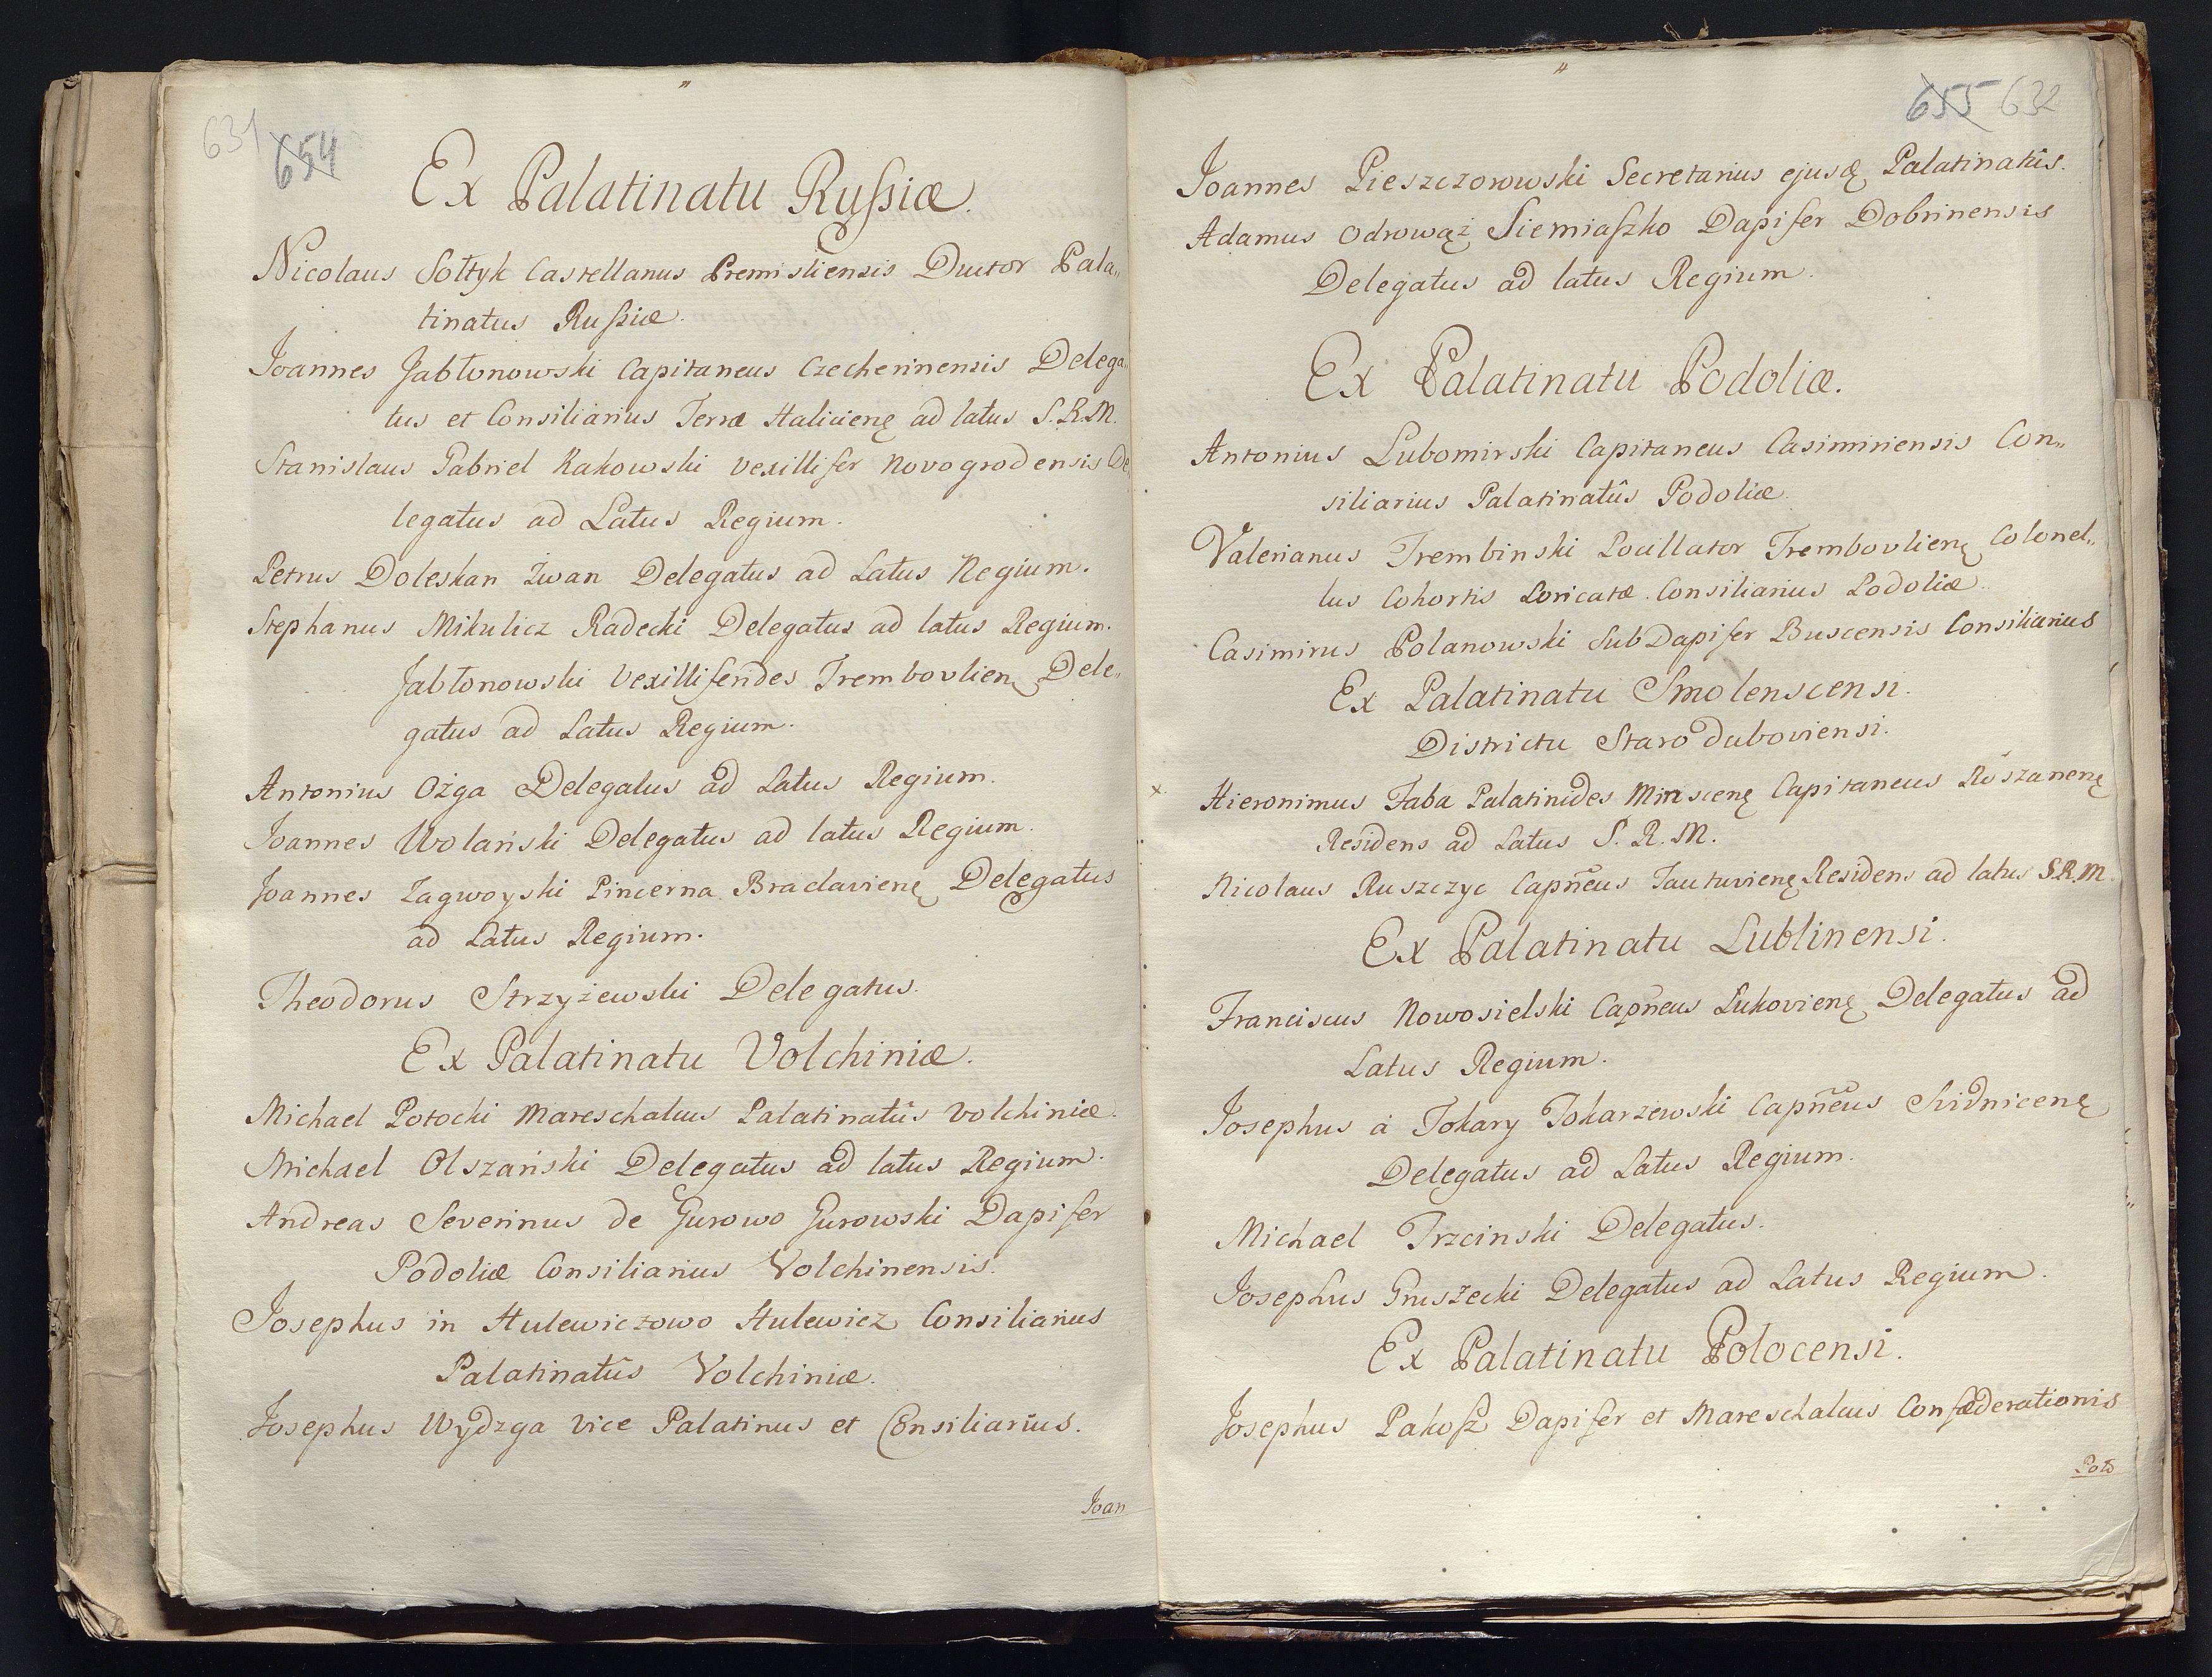 631 654
Ex Palatinatu Russiæ.
Nicolaus Sołtyk Castellanus Premisliensis Ductor Pala„
tinatus Russiæ.
Joannes Jabłonowski Capitaneus Czecherinensis Delega„
tus et Consiliarius Terræ Halicienę ad latus S.R.M.
Stanislaus Gabriel Rakowski vexillifer Novogrodensis De
legatus ad Latus Regium.
Petrus Doleskan Zwan Delegatus ad Latus Regium.
Stephanus Mikulicz Radecki Delegatus ad latus Regium.
Jabłonowski Vexilliferides Trembovlienę Dele„
gatus ad Latus Regium.
Antonius Ożga Delegatus ad Latus Regium.
Joannes Wolański Delegatus ad latus Regium.
Joannes Zagwoyski Pincerna Braclavienę Delegatus
ad Latus Regium.
Theodorus Strzyżewski Delegatus.
Ex Palatinatu Volchiniæ.
Michael Potocki Mareschalcus Palatinatûs Volchiniæ.
Michael Olszański Delegatus ad latus Regium.
Andreas Severinus de Gurowo Gurowski Dapifer
Podoliæ Consiliarius Volchinensis.
Josephus in Hulewiczowo Hulewicz Consiliarius
Palatinatûs Volchiniæ.
Josephus Wydzga Vice Palatinus et Consiliarius.
Joan
655 632
Joannes Pieszczorowski Secretarius ejusdę Palatinatûs.
Adamus Odrowąż Siemiaszko Dapifer Dobrinensis
Delegatus ad latus Regium.
Ex Palatinatu Podoliæ.
Antonius Lubomirski Capitaneus Casimiriensis Con„
siliarius Palatinatûs Podoliæ.
Valerianus Trembinski Pocillator Trembovlienę Colonel„
lus Cohortis Loricatæ Consiliarius Podoliæ.
Casimirus Polanowski SubDapifer Buscensis Consiliarius
Ex Palatinatu Smolenscensi.
Districtu Staroduboviensi.
x Hieronimus Faba Palatinides Minscenę Capitaneus Roszanenę
Residens ad Latus S. R. M.
Nicolaus Ruszczyc Capñeus Tauturienę Residens ad latus S.R.M.
Ex Palatinatu Lublinensi.
Franciscus Nowosielski Capñeus Lukovienę Delegatus ad
Latus Regium.
Josephus à Tokary Tokarzewski Capñeus Svidnicenę
Delegatus ad Latus Regium.
Michael Trzcinski Delegatus.
Josephus Gruszecki Delegatus ad Latus Regium.
Ex Palatinatu Polocensi.
Josephus Pakosz Dapifer et Mareschalcus Confæderationis